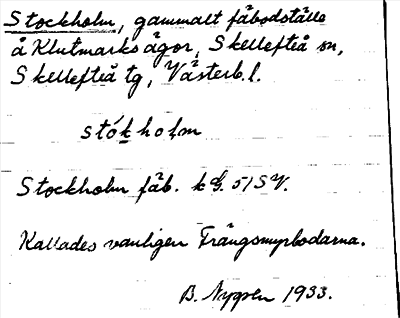 Stockholm, gammalt fäbodställe
å Klutmarks ägor, Skellefteå sn,
Skellefteå tg, Västerb. l.
stókholm
Stockholm fäb. k G. 51 SV.
Kallades vanligen Trångsmyrbodarna.
B. Nygren 1933.